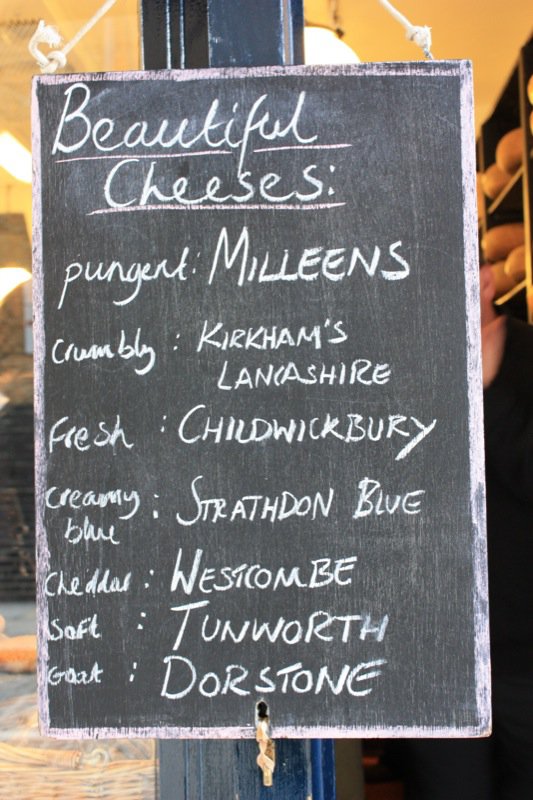 Beautiful
Cheeses:
pungent: MILLEENS
crumbly: KIRKHAM'S
LANCASHIRE
fresh: CHILDWICKBURY
creamy
blue: STRATHDON BLUE
cheddar: WESTCOMBE
soft: TUNWORTH
Goat: DORSTONE